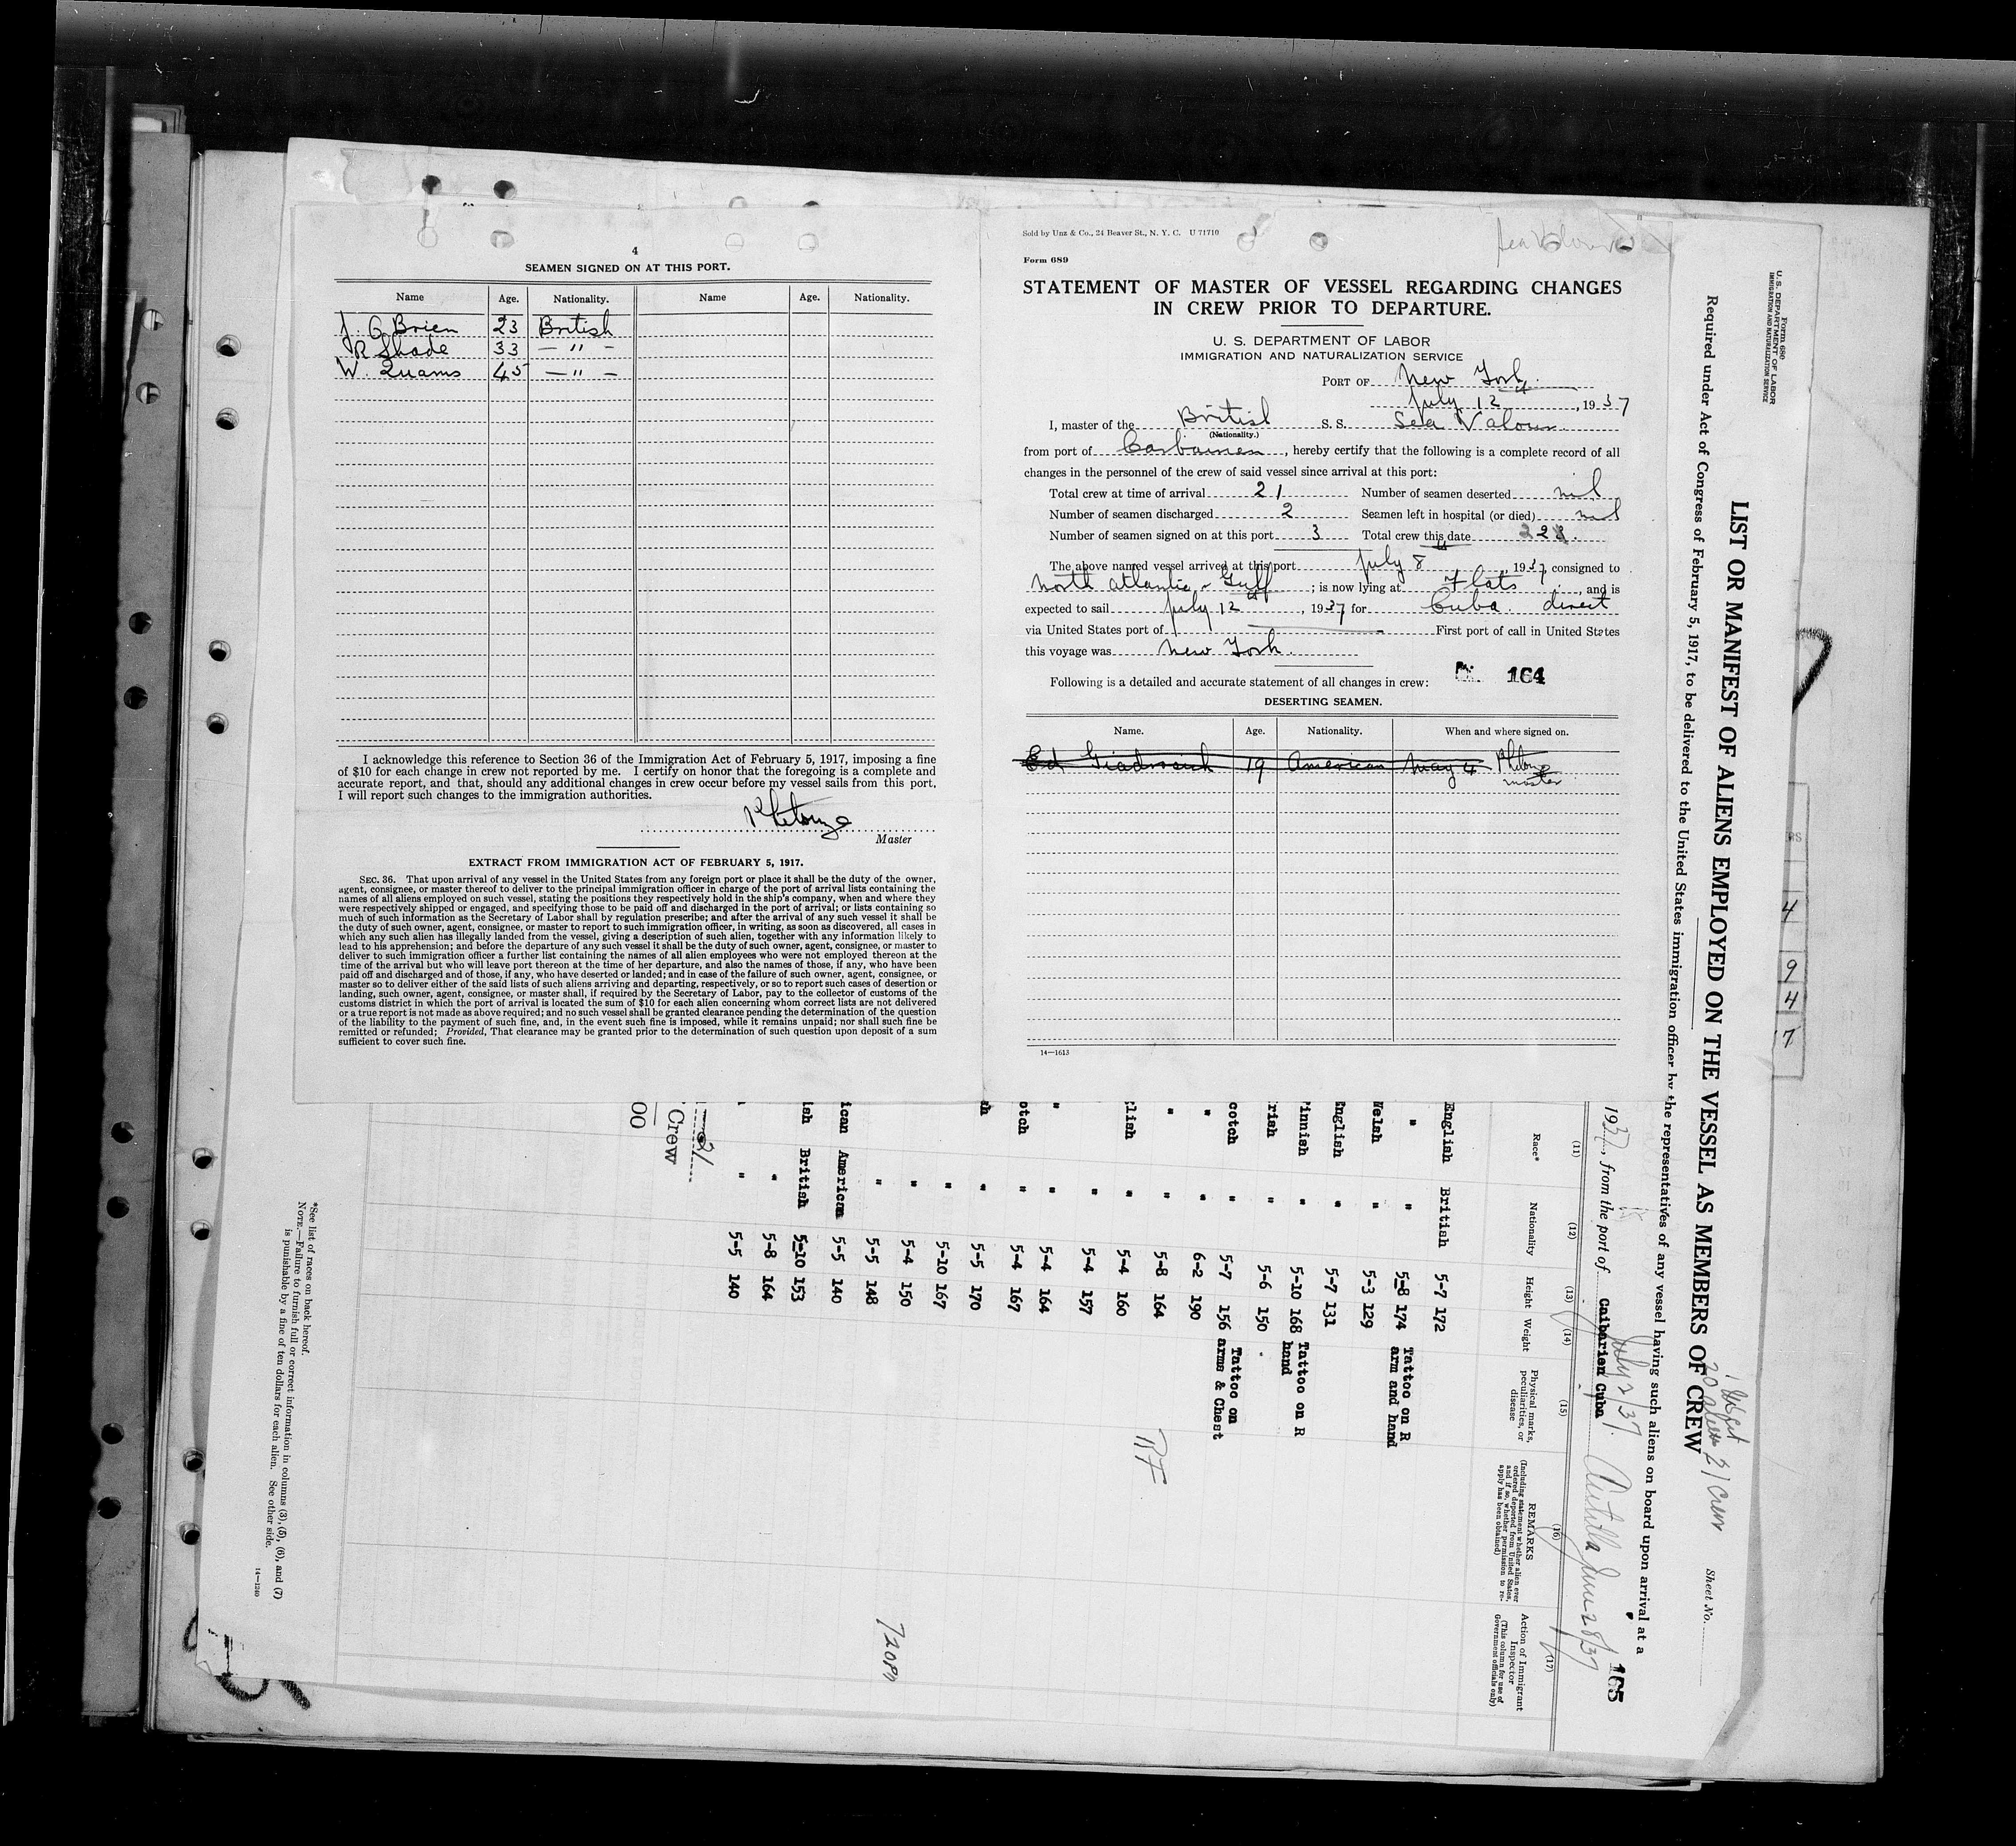 4
SEAMEN SIGNED ON AT THIS PORT.
Name Age. Nationality. Name Age. Nationality.
J. O Brien 23 British
R Shade 33 — " —
W. Quams 45 — " —
I acknowledge this reference to Section 36 of the Immigration Act of February 5, 1917, imposing a fine
of $10 for each change in crew not reported by me. I certify on honor that the foregoing is a complete and
accurate report, and that, should any additional changes in crew occur before my vessel sails from this port,
I will report such changes to the immigration authorities.
Master
EXTRACT FROM IMMIGRATION ACT OF FEBRUARY 5, 1917.
SEC. 36. That upon arrival of any vessel in the United States from any foreign port or place it shall be the duty of the owner,
agent, consignee, or master thereof to deliver to the principal immigration officer in charge of the port of arrival lists containing the
names of all aliens employed on such vessel, stating the positions they respectively hold in the ship's company, when and where they
were respectively shipped or engaged, and specifying those to be paid off and discharged in the port of arrival; or lists containing so
much of such information as the Secretary of Labor shall by regulation prescribe; and after the arrival of any such vessel it shall be
the duty of such owner, agent, consignee, or master to report to such immigration officer, in writing, as soon as discovered, all cases in
which any such alien has illegally landed from the vessel, giving a description of such alien, together with any information likely to
lead to his apprehension; and before the departure of any such vessel it shall be the duty of such owner, agent, consignee, or master to
deliver to such immigration officer a further list containing the names of all alien employees who were not employed thereon at the
time of the arrival but who will leave port thereon at the time of her departure, and also the names of those, if any, who have been
paid off and discharged and of those, if any, who have deserted or landed; and in case of the failure of such owner, agent, consignee, or
master so to deliver either of the said lists of such aliens arriving and departing, respectively, or so to report such cases of desertion or
landing, such owner, agent, consignee, or master shall, if required by the Secretary of Labor, pay to the collector of customs of the
customs district in which the port of arrival is located the sum of $10 for each alien concerning whom correct lists are not delivered
or a true report is not made as above required; and no such vessel shall be granted clearance pending the determination of the question
of the liability to the payment of such fine, and, in the event such fine is imposed, while it remains unpaid; nor shall such fine be
remitted or refunded; Provided, That clearance may be granted prior to the determination of such question upon deposit of a sum
sufficient to cover such fine.
Sold by Unz & Co., 24 Beaver St., N. Y. C. U 71710
Form 689
STATEMENT OF MASTER OF VESSEL REGARDING CHANGES
IN CREW PRIOR TO DEPARTURE.
U. S. DEPARTMENT OF LABOR
IMMIGRATION AND NATURALIZATION SERVICE
PORT OF New York
July 12th, 1937
I, master of the British S. S. Sea Valour
(Nationality.)
from port of , hereby certify that the following is a complete record of all
changes in the personnel of the crew of said vessel since arrival at this port:
Total crew at time of arrival 21 Number of seamen deserted nil
Number of seamen discharged 2 Seamen left in hospital (or died) nil
Number of seamen signed on at this port 3 Total crew this date 22
The above named vessel arrived at this port July 8th, 1937 consigned to
North Atlantic & Gulf; is now lying at Flats, and is
expected to sail July 12th, 1937 for Cuba direct
via United States port of First port of call in United States
this voyage was New York.
Following is a detailed and accurate statement of all changes in crew: 164
DESERTING SEAMEN.
Name. Age. Nationality. When and where signed on.
Ed 19 American May 4
master
14—1613
Form 680
U. S. DEPARTMENT OF LABOR
IMMIGRATION AND NATURALIZATION SERVICE
LIST OR MANIFEST OF ALIENS EMPLOYED ON THE VESSEL AS MEMBERS OF CREW
Required under Act of Congress of February 5, 1917, to be delivered to the United States immigration officer by the representatives of any vessel having such aliens on board upon arrival at a
20 aliens 21 crew
Sheet No.
1937, from the port of Caibarien Cuba July 2/37. Antilla June 28/37
165
(11) (12) (13) (14) (15) (16) (17)
Race* Nationality Height Weight Physical marks, peculiarities, or disease
REMARKS
(Including statement whether alien ever ordered deported from United States, and if so, whether permission to re-apply has been obtained)
Action of Immigrant Inspector
(This column for use of Government officials only)
English British 5-7 172
" " 5-8 174 Tattoo on R arm and hand
Welsh " 5-3 129
English " 5-7 131
Finnish " 5-10 168 Tattoo on R hand
rish " 5-6 150
cotch " 5-7 156 Tattoo on arms & Chest
" " 6-2 190
" " 5-8 164
lish " 5-4 160
" 5-4 157
" " 5-4 164
otch " 5-4 167
sh " 5-5 170
" 5-10 167
" 5-4 150
" 5-5 148
ican American 5-5 140
ish British 5-10 153
" 5-8 164
" 5-5 140
RF
21
Crew
00
*See list of races on back hereof.
NOTE.—Failure to furnish full or correct information in columns (3), (5), (6), and (7)
is punishable by a fine of ten dollars for each alien. See other side.
14—1240
4
9
4
7